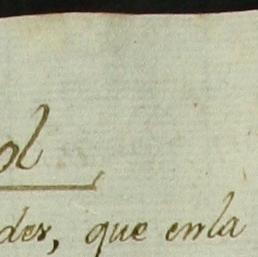 ol
des, que enla